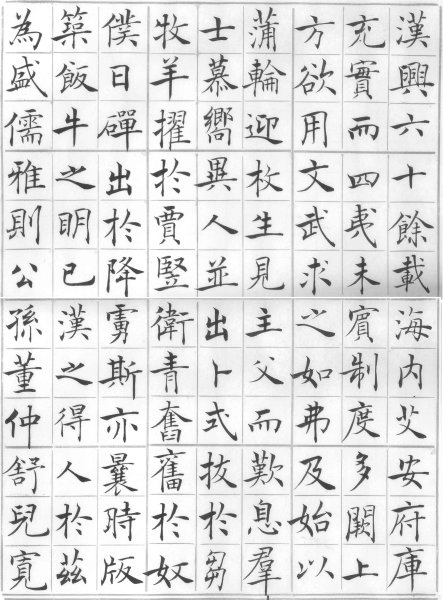 漢興六十餘載海內艾安府庫
充實而四夷未賓制度多闕上
方欲用文武求之如弗及始以
蒲輪迎枚生見主父而歎息羣
士慕嚮異人並出卜式拔於芻
牧羊擢於賈豎衛青奮舊於奴
僕日磾出於降虜斯亦曩時版
築飯牛之明已漢之得人於茲
為盛儒雅則公孫董仲舒兒寬